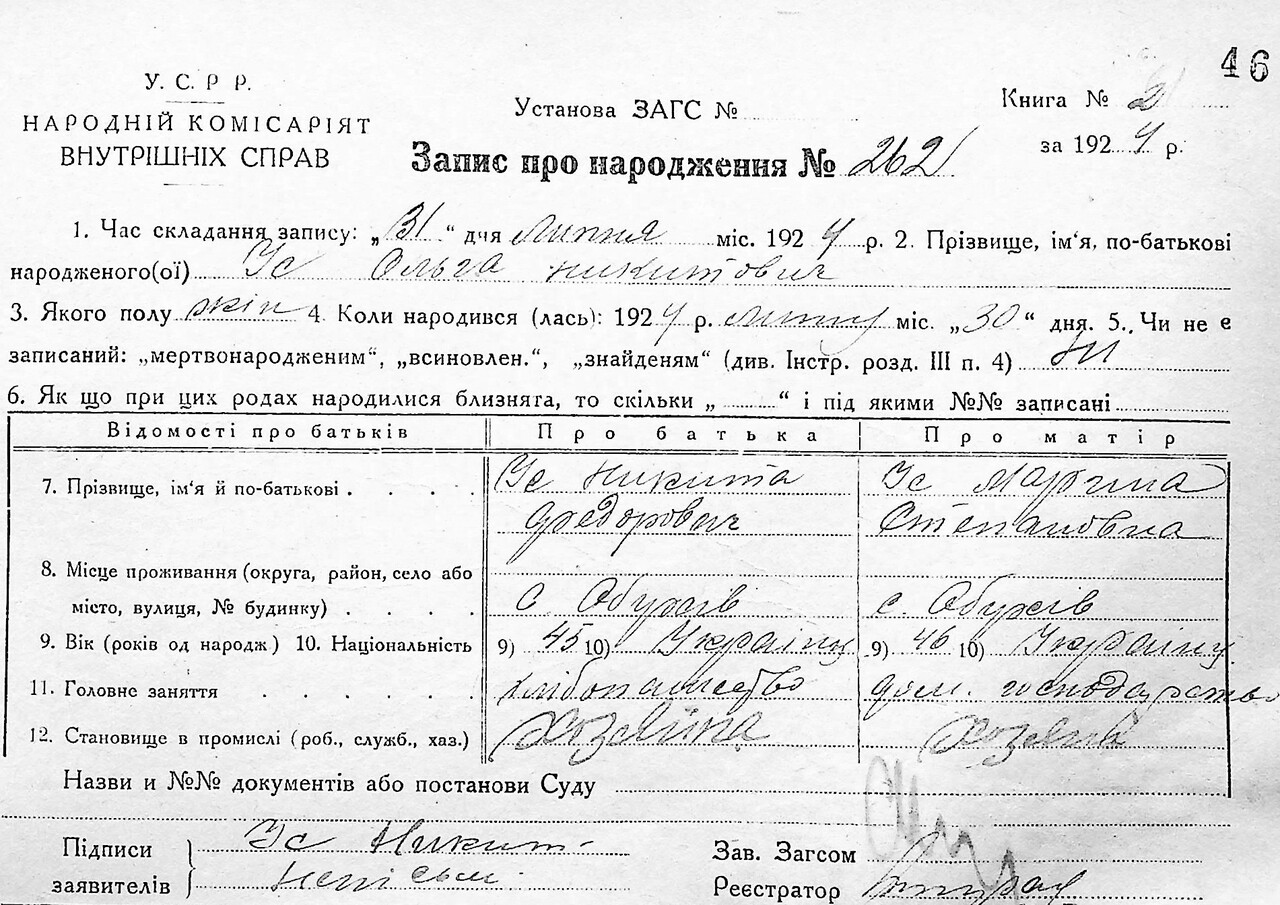 46
У. С. Р Р.
НАРОДНІЙ КОМІСАРІЯТ
ВНУТРІШНІХ СПРАВ
Установа ЗАГС №
Книга № 2
за 1924 р.
Запис про народження № 262
1. Час складання запису: „31“ дня липня міс. 1924 р. 2. Прізвище, ім‘я, по-батькові
народженого(ої) Ус Ольга Никитович
3. Якого полу жін 4. Коли народився (лась): 1924 р. липня міс. „30“ дня. 5. Чи не є
записаний: „мертвонародженим“, „всиновлен.“, „знайденям“ (див. Інстр. розд. III п. 4) Ні
6. Як що при цих родах народилися близняга, то скільки „ “ і під якими №№ записані
Відомості про батьків Про батька Про матір
7. Прізвище, ім‘я й по-батькові . . . . Ус Никита Ус Марина
Федорович Степановна
8. Місце проживання (округа, район, село або
місто, вулиця, № будинку) . . . . с. Обухів с. Обухів
9. Вік (років од народж) 10. Національність 9) 45 10) Українц 9) 46 10) Українц.
11. Головне заняття . . . . . хлібопашество дом. господарство
12. Становище в промислі (роб., служб., хаз.) Хозяїна
Назви и №№ документів або постанови Суду
Підписи Ус Никит
заявителів
Зав. Загсом
Реєстратор